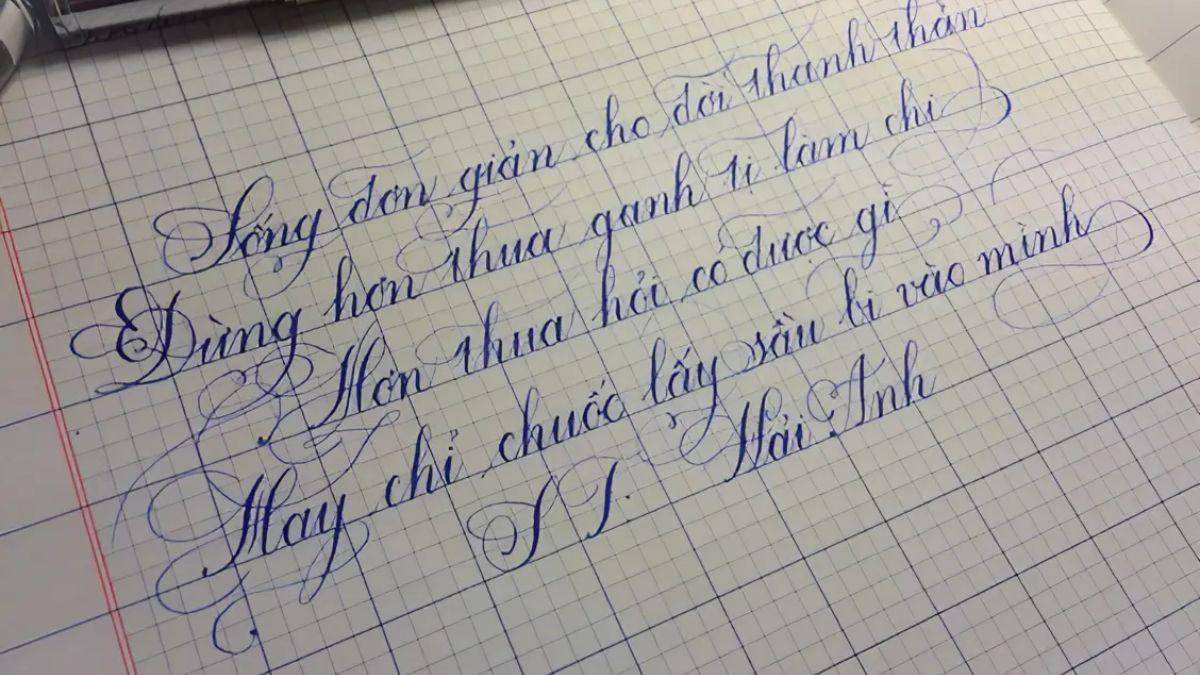 Sống đơn giản cho đời thanh thản
Đừng hơn thua ganh tị làm chi
Hơn thua hỏi có được gì
Hay chỉ chuốc lấy sầu bi vào mình
ST. Hải Anh